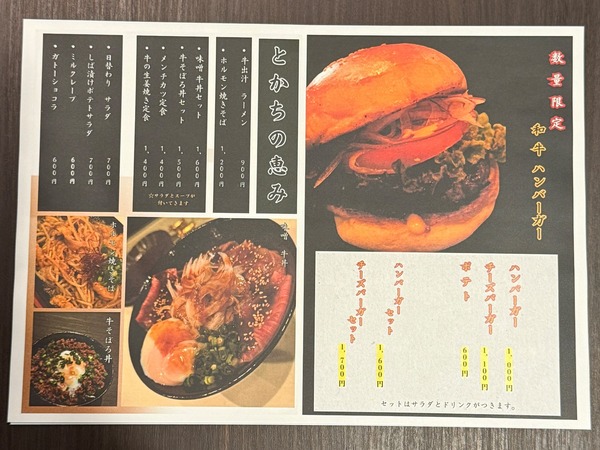 数量限定
和牛 ハンバーガー
ハンバーガー 1,000円
チーズバーガー 1,100円
ポテト 600円
ハンバーガーセット 1,600円
チーズバーガーセット 1,700円
セットはサラダとドリンクがつきます。
とかちの恵み
・牛出汁 ラーメン 900円
・ホルモン焼きそば 1,200円
・味噌 牛丼セット 1,600円
・牛そぼろ丼セット 1,500円
・メンチカツ定食 1,400円
・牛の生姜焼き定食 1,400円
☆サラダとスープが
付いてきます
・日替わり サラダ 700円
・しば漬けポテトサラダ 700円
・ミルクレープ 600円
・ガトーショコラ 600円
味噌 牛丼
ホルモン焼きそば
牛そぼろ丼